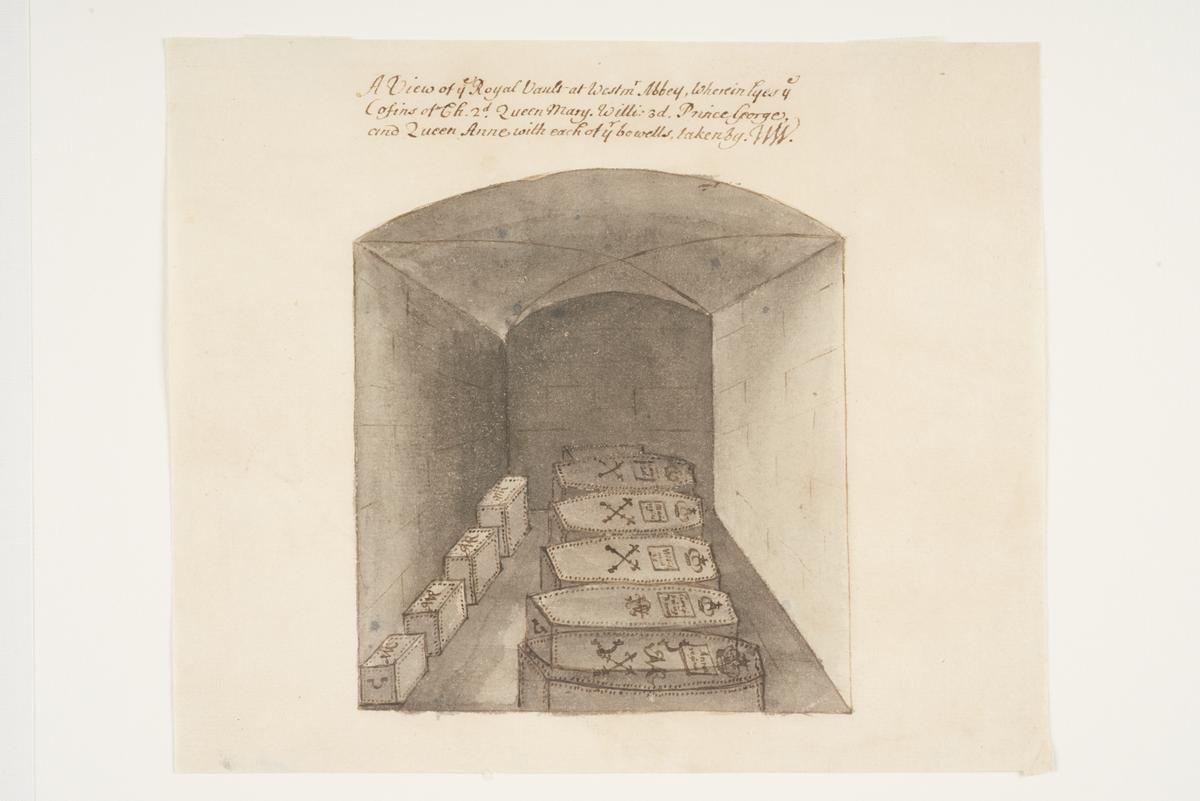 A View of yᵉ Royal Vault at Westmʳ Abbey, Wherein lyes yᵉ
Cofins of Ch. 2ᵈ. Queen Mary. Willi: 3d. Prince George,
and Queen Anne with each of yʳ bowells, taken by.
AR